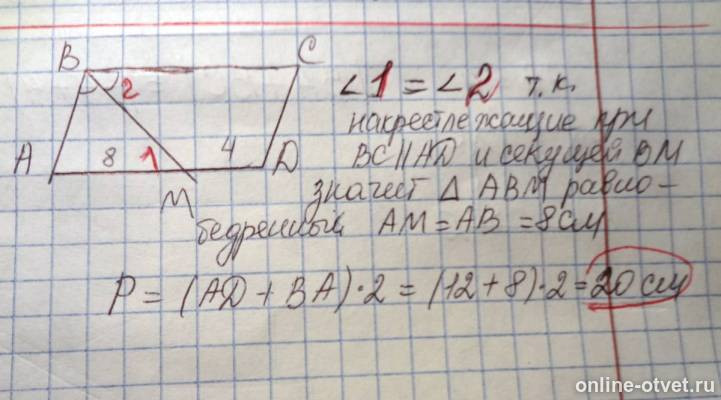 B C
2
A 8 1 4 D
M
∠1 = ∠2 т.к.
накрестлежащие при
BC||AD и секущей BM
значит △ ABM равно-
бедренный AM = AB = 8см
P = (AD + BA)·2 = (12+8)·2 = 20 см
online-otvet.ru